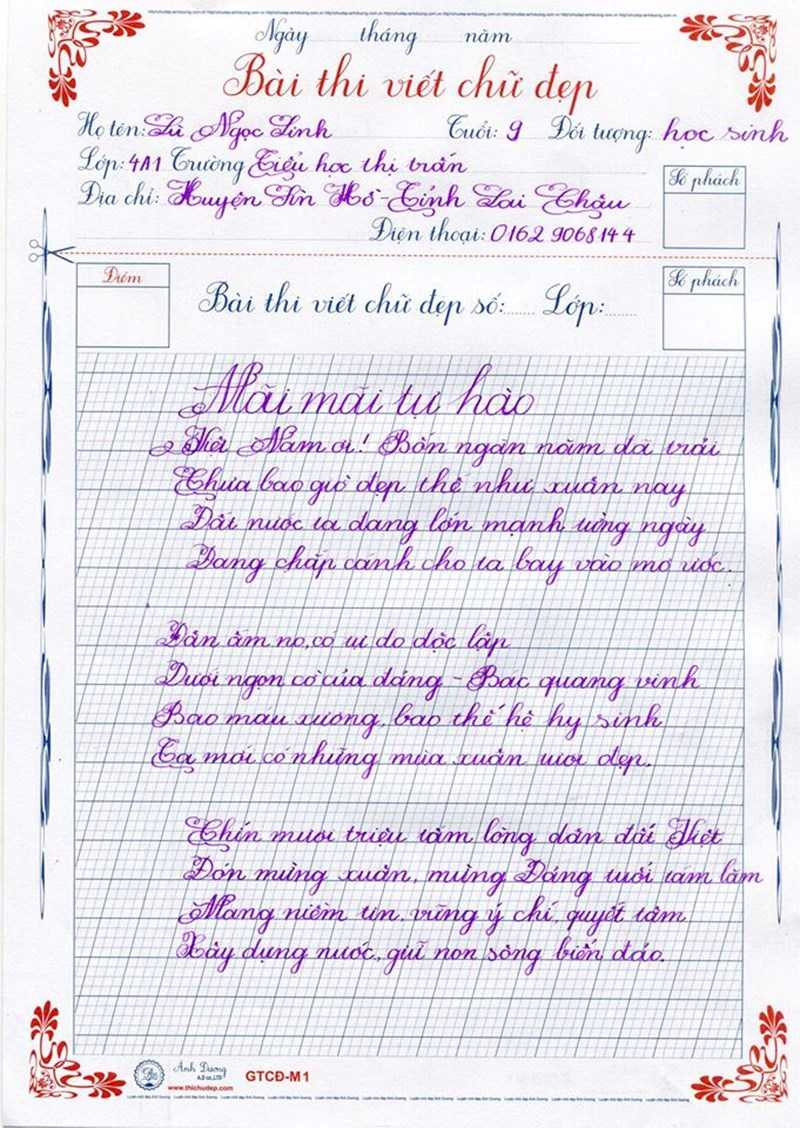 Ngày tháng năm
Bài thi viết chữ đẹp
Họ tên: Lù Ngọc Linh Tuổi: 9 Đối tượng: học sinh
Lớp: 4A1 Trường Tiểu học thị trấn
Địa chỉ: Huyện Sìn Hồ - Tỉnh Lai Châu
Số phách
Điện thoại: 0162 9068144
Điểm
Bài thi viết chữ đẹp số:....... Lớp:.......
Số phách
Mãi mãi tự hào
Việt Nam ơi! Bốn ngàn năm đã trải
Chưa bao giờ đẹp thế như xuân nay
Đất nước ta đang lớn mạnh từng ngày
Đang chắp cánh cho ta bay vào mơ ước.
Dân ấm no, có tự do độc lập
Dưới ngọn cờ của đảng - Bác quang vinh
Bao máu xương, bao thế hệ hy sinh
Ta mới có những mùa xuân tươi đẹp.
Chín mươi triệu tấm lòng dân đất Việt
Đón mừng xuân, mừng Đảng tuổi tám lăm
Mang niềm tin, vững ý chí, quyết tâm
Xây dựng nước, giữ non sông biển đảo.
Ánh Dương
www.thichudep.com
GTCĐ-M1